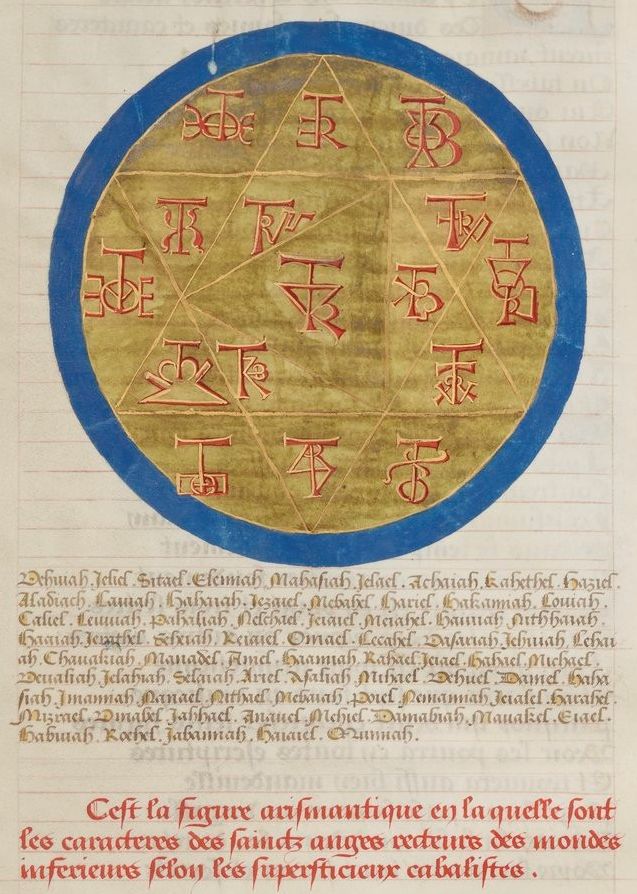 Vehuiah. Jeliel. Sitael. Elemiah. Mahasiah. Jelael. Achaiah. Kahethel. Haziel.
Aladiach. Lauiah. Hahaiah. Jezaiel. Mebahel. Hariel. Hakamiah. Louiah.
Caliel. Leuuiah. Pahaliah. Nelchael. Jeiaiel. Melahel. Haiuiah. Nithhaiah.
Haaiah. Jerathel. Seheiah. Reiaiel. Omael. Lecabel. Vasariah. Jehuiah. Lehai
ah. Chauakiah. Manadel. Aniel. Haamiah. Rahael. Jeiael. Hahael. Michael.
Veualiah. Jelahiah. Selaiah. Ariel. Asaliah. Mihael. Vehuel. Daniel. Haha
siah. Imamiah. Nanael. Nithael. Mebaiah. Poiel. Nemamiah. Jeialel. Harahel.
Mizrael. Vmabel. Jahhael. Anauel. Mehiel. Damabiah. Mauakel. Eiael.
Habuiah. Roehel. Jabamiah. Haiaiel. Mumiah.
Cest la figure arismantique en la quelle sont
les caracteres des sainctz anges recteurs des mondes
inferieurs selon les supersticieux cabalistes.